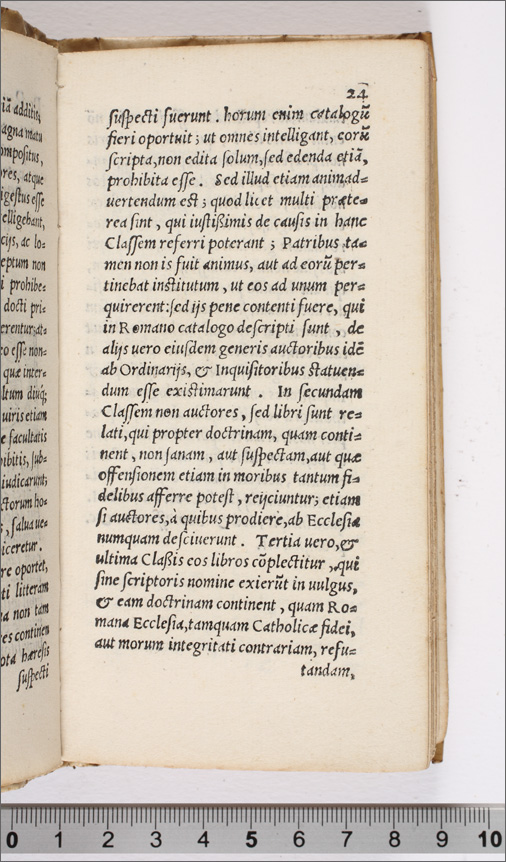 iā additis,
agna inatu
ompositus,
res, atque
igestus esse
elligebant,
cijs, ac lo-
eptum non
i prohibe-
docti pri-
erentur; at-
o esse non-
quæ inter-
ltum diuq́;
uiris etiam
e facultatis
ibitis, sub-
iudicarunt;
ctorum ho-
, salua ue-
iceretur.
re oportet,
ti litteram
na non tam
res continen
ota hæresis
suspecti
24
suspecti fuerunt. horum enim catalogū
fieri oportuit; ut omnes intelligant, eorū
scripta, non edita solum, sed edenda etiā,
prohibita esse. Sed illud etiam animad-
uertendum est; quod licet multi præte-
rea sint, qui iustißimis de causis in hanc
Classem referri poterant; Patribus ta-
men non is fuit animus, aut ad eorū per-
tinebat institutum, ut eos ad unum per-
quirerent: sed ijs pene contenti fuere, qui
in Romano catalogo descripti sunt, de
alijs vero eiusdem generis auctoribus idē
ab Ordinarijs, & Inquisitoribus statuen-
dum esse existimarunt. In secundam
Classem non auctores, sed libri sunt re-
lati, qui propter doctrinam, quam conti-
nent, non sanam, aut suspectam, aut quæ
offensionem etiam in moribus tantum fi-
delibus afferre potest, reijciuntur; etiam
si auctores, à quibus prodiere, ab Ecclesia
numquam desciuerunt. Tertia vero, &
ultima Classis eos libros cōplectitur, qui
sine scriptoris nomine exierūt in uulgus,
& eam doctrinam continent, quam Ro-
mana Ecclesia, tamquam Catholicæ fidei,
aut morum integritati contrariam, refu-
tandam,
0 1 2 3 4 5 6 7 8 9 10